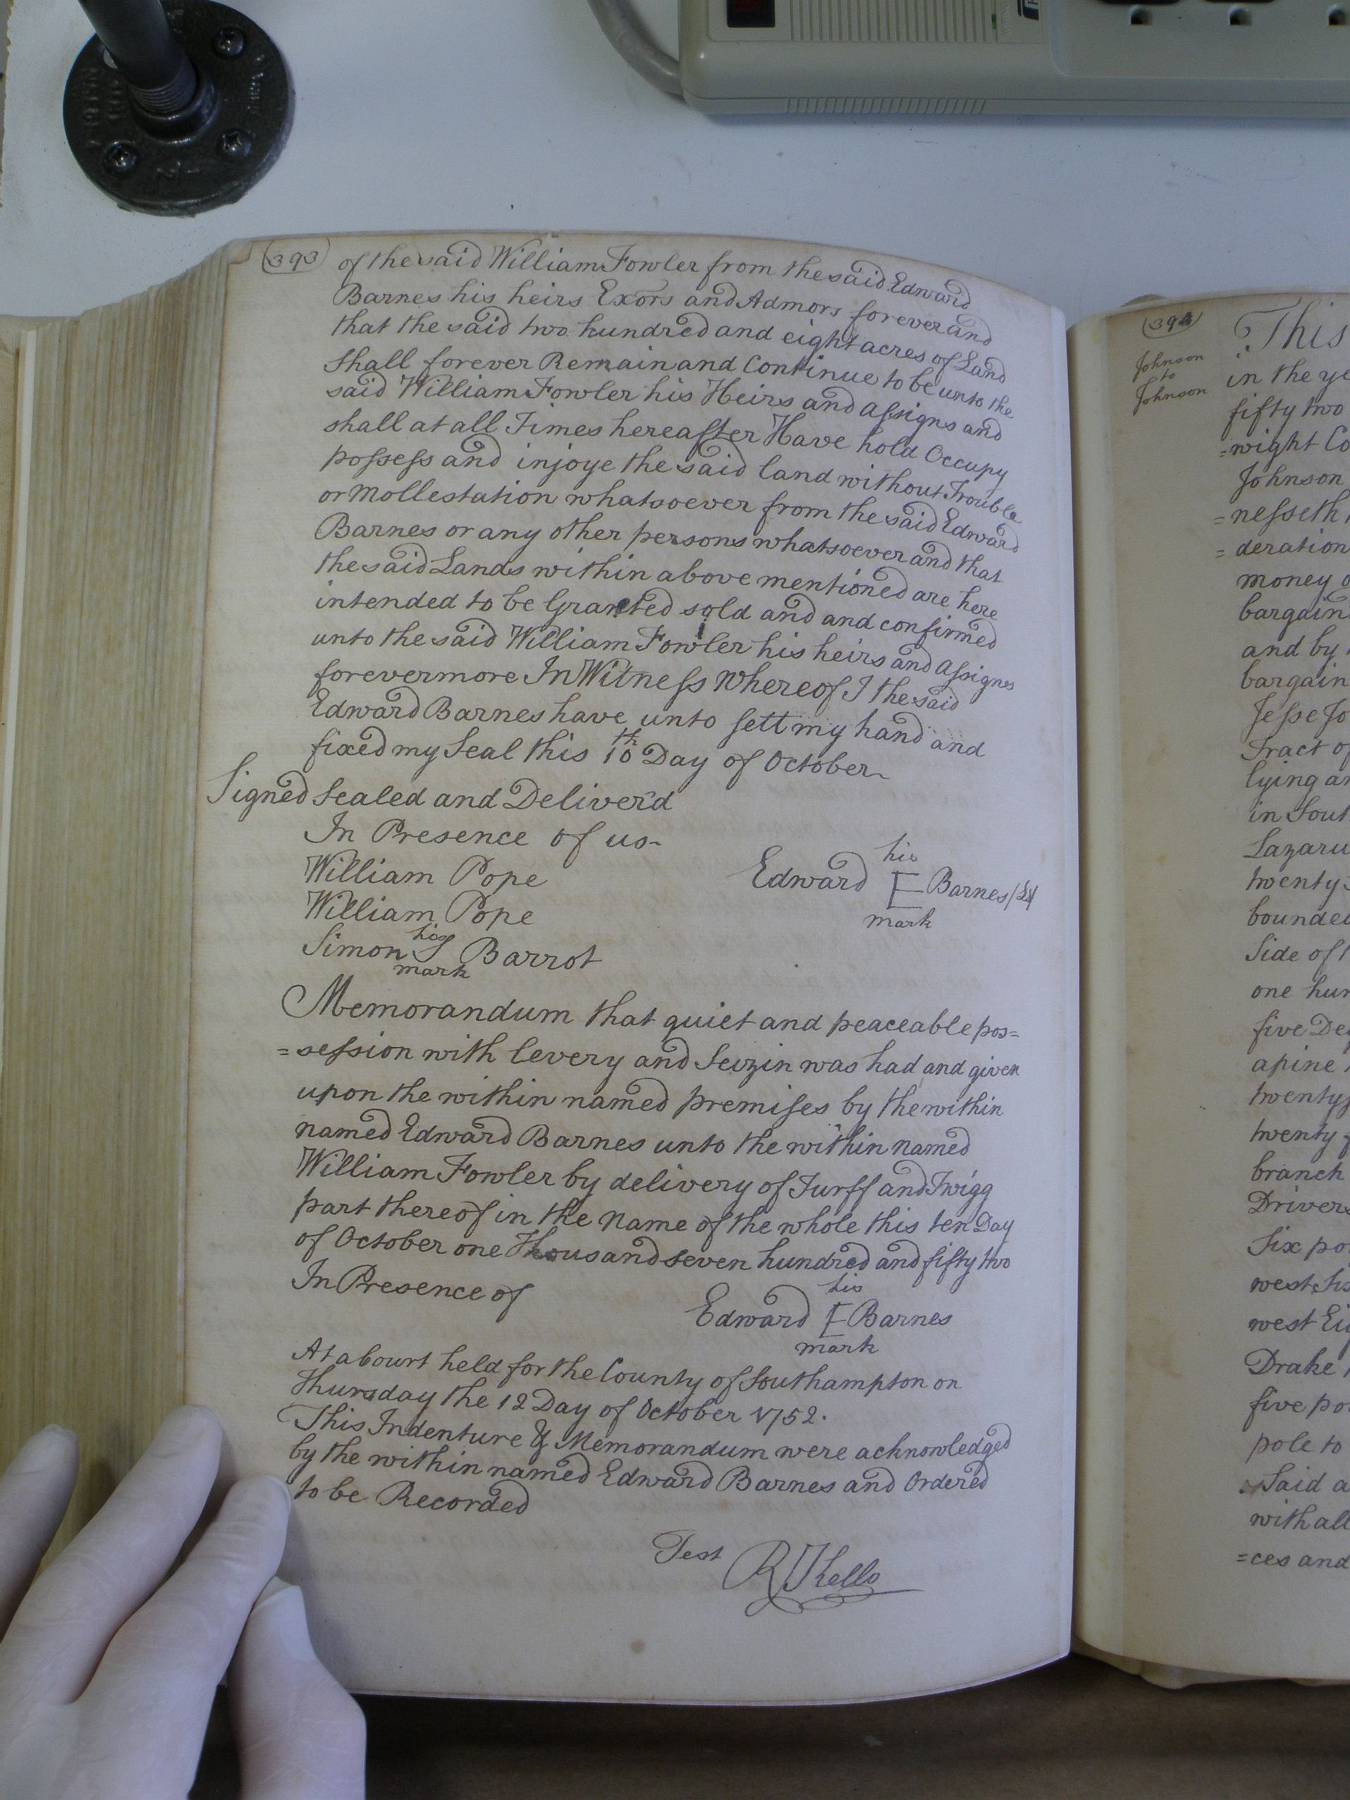 (393)
of the said William Fowler from the said Edward
Barnes his heirs Exors and Admors forever and
that the said two hundred and eight acres of Land
shall forever Remain and Continue to be unto the
said William Fowler his Heirs and assigns and
shall at all Times hereafter Have hold Occupy
possess and injoye the said land without Trouble
or Mollestation whatsoever from the said Edward
Barnes or any other persons whatsoever and that
the said Lands within above mentioned are here
intended to be Granted sold and and confirmed
unto the said William Fowler his heirs and assignes
forevermore In Witness Whereof I the said
Edward Barnes have unto sett my hand and
fixed my Seal this 10th Day of October
Signed Sealed and Deliver'd
In Presence of us
William Pope
William Pope
Simon his S mark Barrot
Edward his E mark Barnes
Memorandum that quiet and peaceable pos=
=session with levery and Seizin was had and given
upon the within named premises by the within
named Edward Barnes unto the within Named
William Fowler by delivery of Turff and Twigg
part thereof in the Name of the whole this ten Day
of October one Thousand seven hundred and fifty two
In Presence of
Edward his E mark Barnes
At a Court held for the County of Southampton on
Thursday the 12 Day of October 1752.
This Indenture & Memorandum were acknowledged
by the within named Edward Barnes and Ordered
to be Recorded
Test R Kello
(394)
Johnson
to
Johnson
This
in the ye
fifty two
=wight Co
Johnson
=nesseth
=deration
money o
bargain
and by
bargain
Jesse Jo
Tract of
lying an
in Sout
Lazaru
twenty
bounded
Side of t
one hun
five Deg
a pine
twenty
twenty f
branch
Drivers
Six po
west
west Eig
Drake
five po
pole to
Said a
with all
=ces and